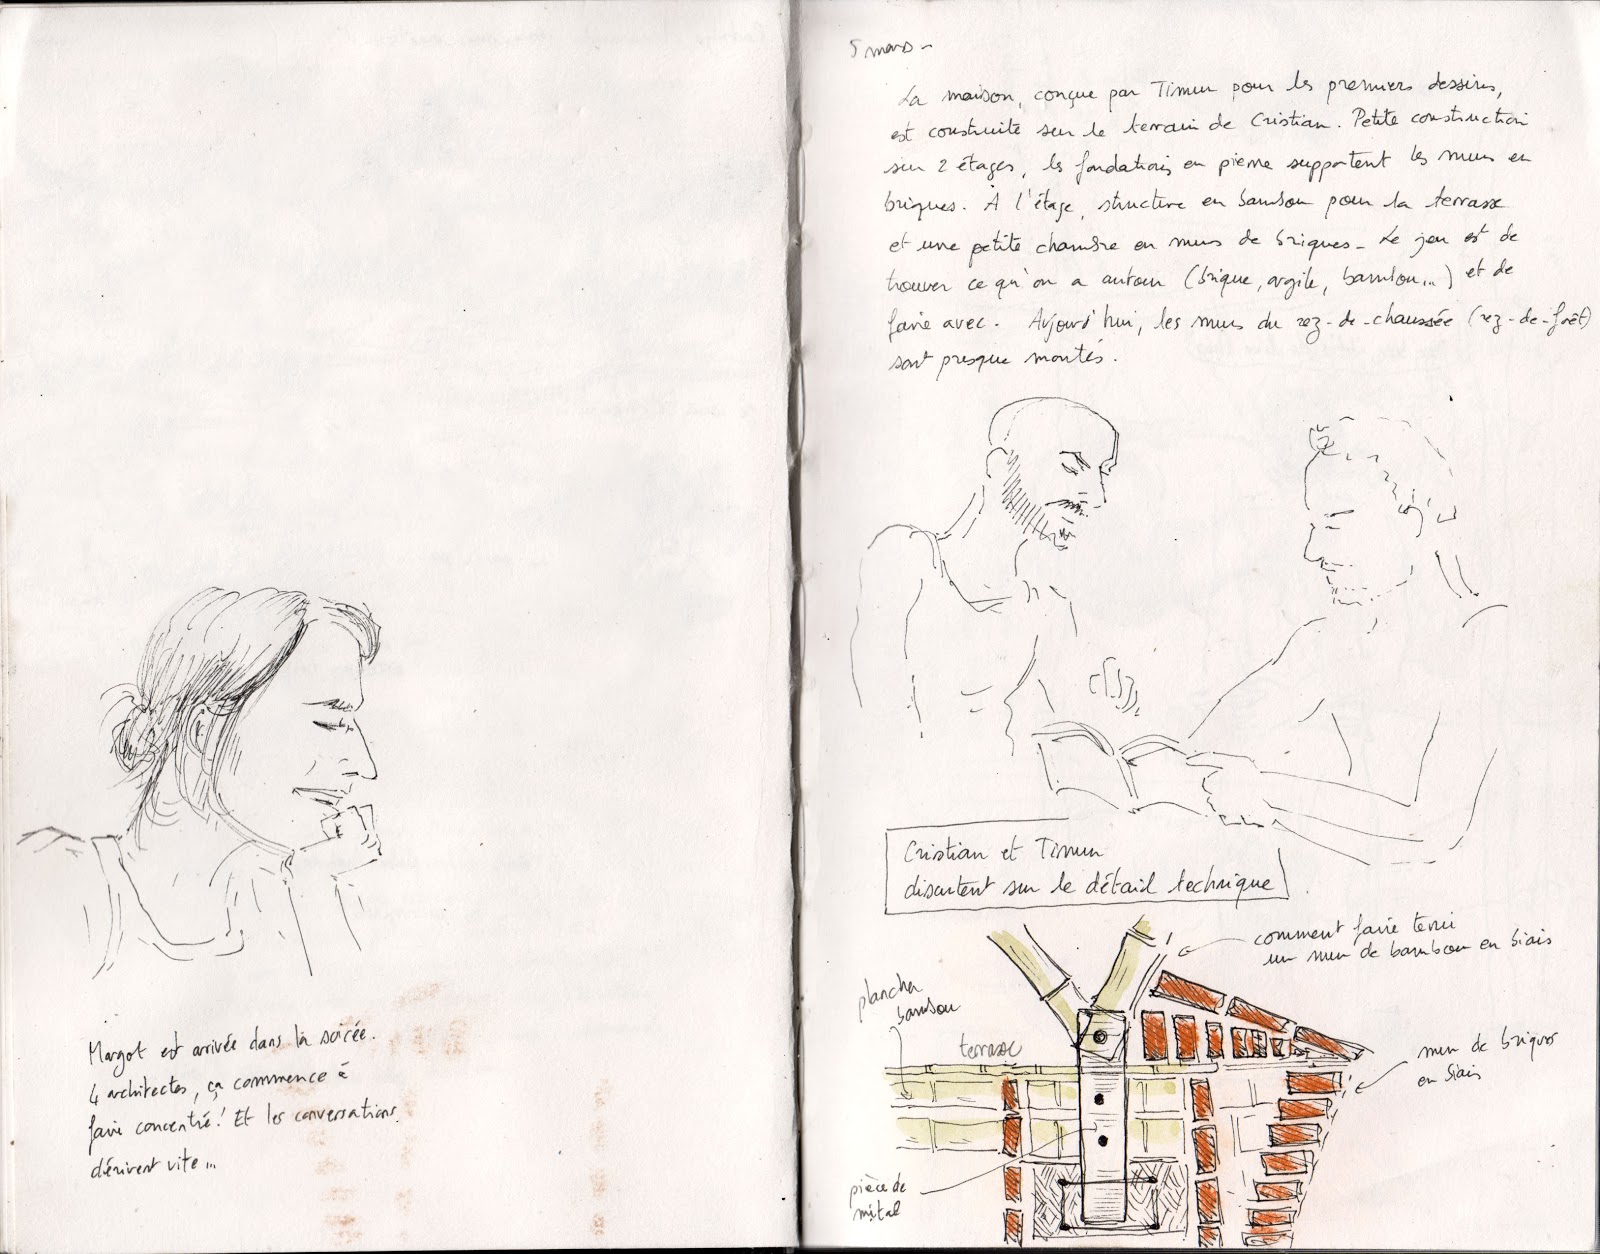 Margot est arrivée dans la soirée.
4 architectes, ça commence à
faire concentré ! Et les conversations
dérivent vite...
5 mars -
La maison, conçue par Timur pour les premiers dessins,
est construite sur le terrain de Cristian. Petite construction
sur 2 étages, les fondations en pierre supportent les murs en
briques. À l'étage, structure en bambou pour la terrasse
et une petite chambre en murs de briques - Le jeu est de
trouver ce qu'on a autour (brique, argile, bambou...) et de
faire avec. Aujourd'hui, les murs du rez-de-chaussée (rez-de-forêt)
sont presque montés.
Cristian et Timur
discutent sur le détail technique
comment faire tenir
un mur de bambou en biais
plancher
bambou
terrasse
mur de briques
en biais
pièce de
métal